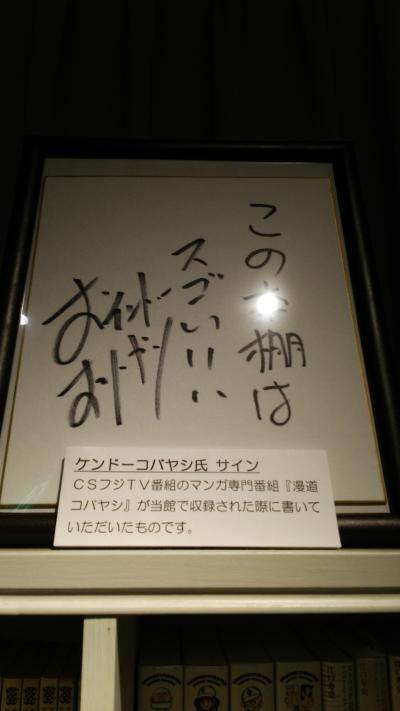 この本棚は
スゴいいい
ケンドーコバヤシ氏 サイン
ＣＳフジＴＶ番組のマンガ専門番組『漫道
コバヤシ』が当館で収録された際に書いて
いただいたものです。